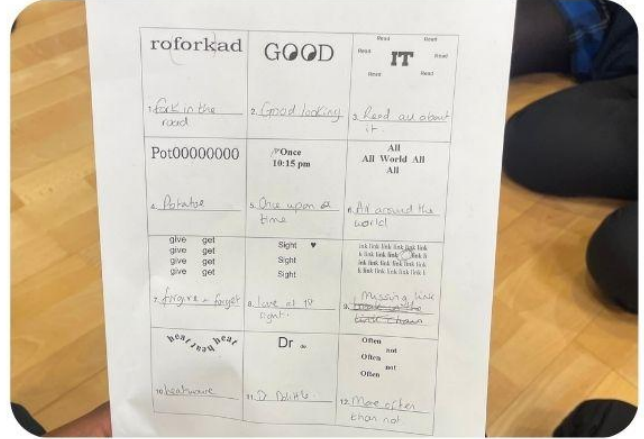 roforkad
1. fork in the
road
GOOD
2. Good looking
Read Read
Read IT Read
Read Read
3. Read all about
it.
Pot00000000
4. Potatoe
Once
10:15 pm
5. Once upon a
time
All
All World All
All
6. All around the
world
give get
give get
give get
give get
7. forgive + forget
Sight ♥
Sight
Sight
8. love at 1st
sight.
ink link link link link link
k link link link link li
ink link link link link link
k link link link link link l
9. Missing link
heat heat heat
10. heatwave
Dr
11. D Dolittle
Often
not
Often
not
Often
12. More often
than not